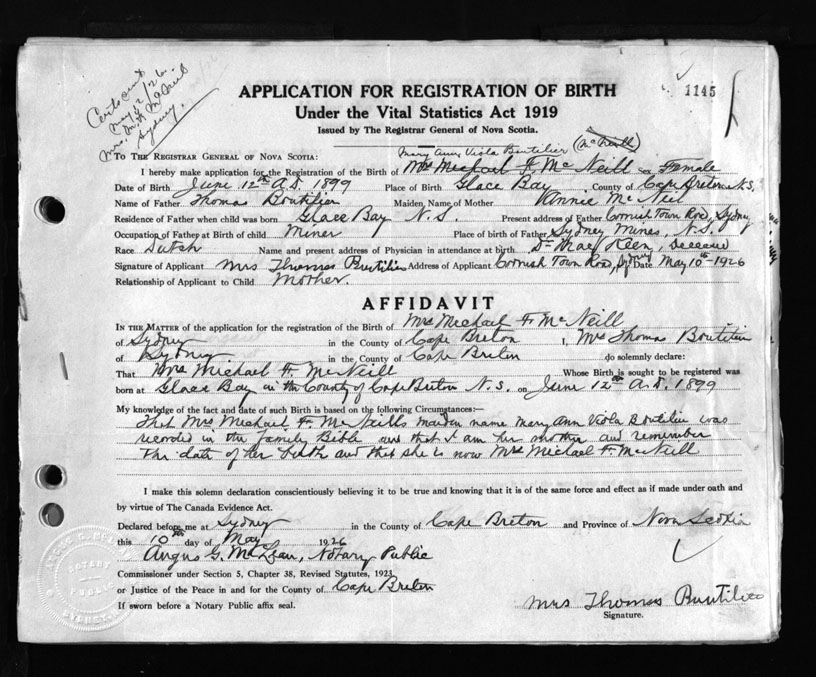 Cert sent
May 12/26.
Mrs. M.
Sydney.
APPLICATION FOR REGISTRATION OF BIRTH
1145
Under the Vital Statistics Act 1919
Issued by The Registrar General of Nova Scotia.
Mary Ann Viola Boutilier (McNeill)
TO THE REGISTRAR GENERAL OF NOVA SCOTIA:
I hereby make application for the Registration of the Birth of Mrs Michael F. McNeill sex Female
Date of Birth June 12th A.D. 1899 Place of Birth Glace Bay County of Cape Breton N.S.
Name of Father Thomas Boutilier Maiden Name of Mother Annie McNeil
Residence of Father when child was born Glace Bay N.S. Present address of Father Cornish Town Road, Sydney
Occupation of Father at Birth of child Miner Place of birth of Father Sydney Mines, N.S.
Race Dutch Name and present address of Physician in attendance at birth Dr MacKeen, Deceased
Signature of Applicant Mrs Thomas Buutilier Address of Applicant Cornish Town Road, Sydney Date May 10th 1926
Relationship of Applicant to Child Mother.
AFFIDAVIT
IN THE MATTER of the application for the registration of the Birth of Mrs Michael F. McNeill
of Sydney in the County of Cape Breton I, Mrs Thomas Boutilier
of Sydney in the County of Cape Breton do solemnly declare:
That Mrs Michael F. McNeill Whose Birth is sought to be registered was
born at Glace Bay in the County of Cape Breton N.S. on June 12th A.D. 1899
My knowledge of the fact and date of such Birth is based on the following Circumstances:—
That Mrs Michael F. McNeills maiden name Mary Ann Viola Boutilier was
recorded in the family Bible and that I am her mother and remember
the date of her birth and that she is now Mrs Michael F. McNeill
I make this solemn declaration conscientiously believing it to be true and knowing that it is of the same force and effect as if made under oath and
by virtue of The Canada Evidence Act.
Declared before me at Sydney in the County of Cape Breton and Province of Nova Scotia
this 10th day of May 1926
Angus G. McLean, Notary Public
Commissioner under Section 5, Chapter 38, Revised Statutes, 1923
or Justice of the Peace in and for the County of Cape Breton
If sworn before a Notary Public affix seal.
Mrs Thomas Buutilier
Signature.
ANGUS G. McLEAN
NOTARY
PUBLIC
SYDNEY, N.S.